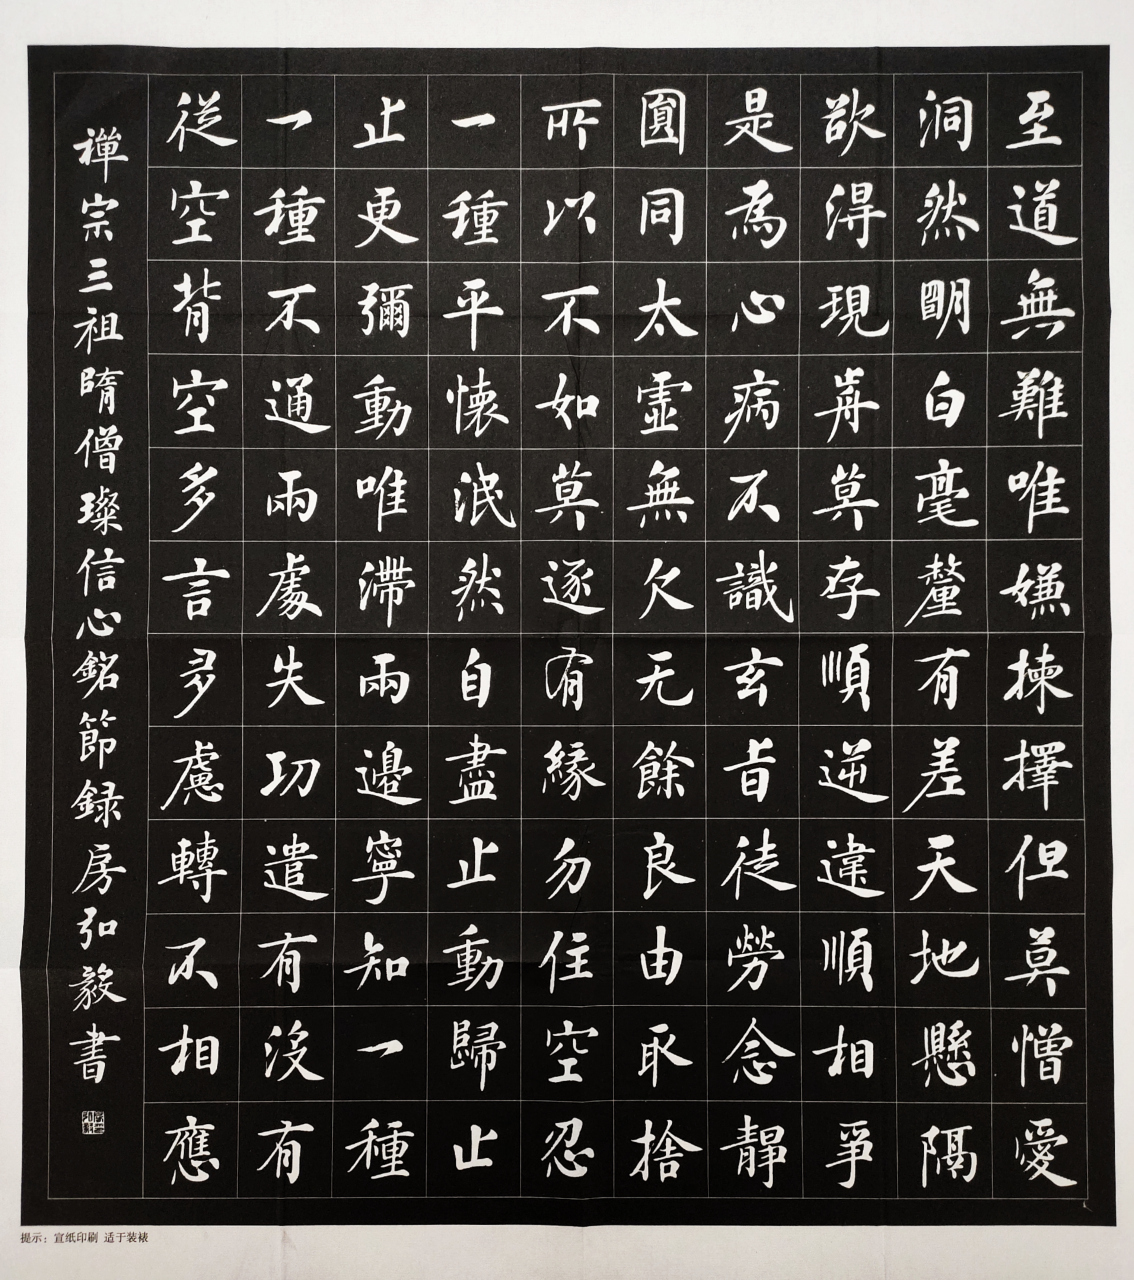 至道無難唯嫌揀擇但莫憎愛
洞然明白毫釐有差天地懸隔
欲得現前莫存順逆違順相爭
是為心病不識玄旨徒勞念靜
圓同太虛無欠无餘良由取捨
所以不如莫逐有緣勿住空忍
一種平懷泯然自盡止動歸止
止更彌動唯滯兩邊寧知一種
一種不通兩處失功遣有沒有
從空背空多言多慮轉不相應
禪宗三祖隋僧璨信心銘節録房弘毅書
提示：宣纸印刷 适于装裱